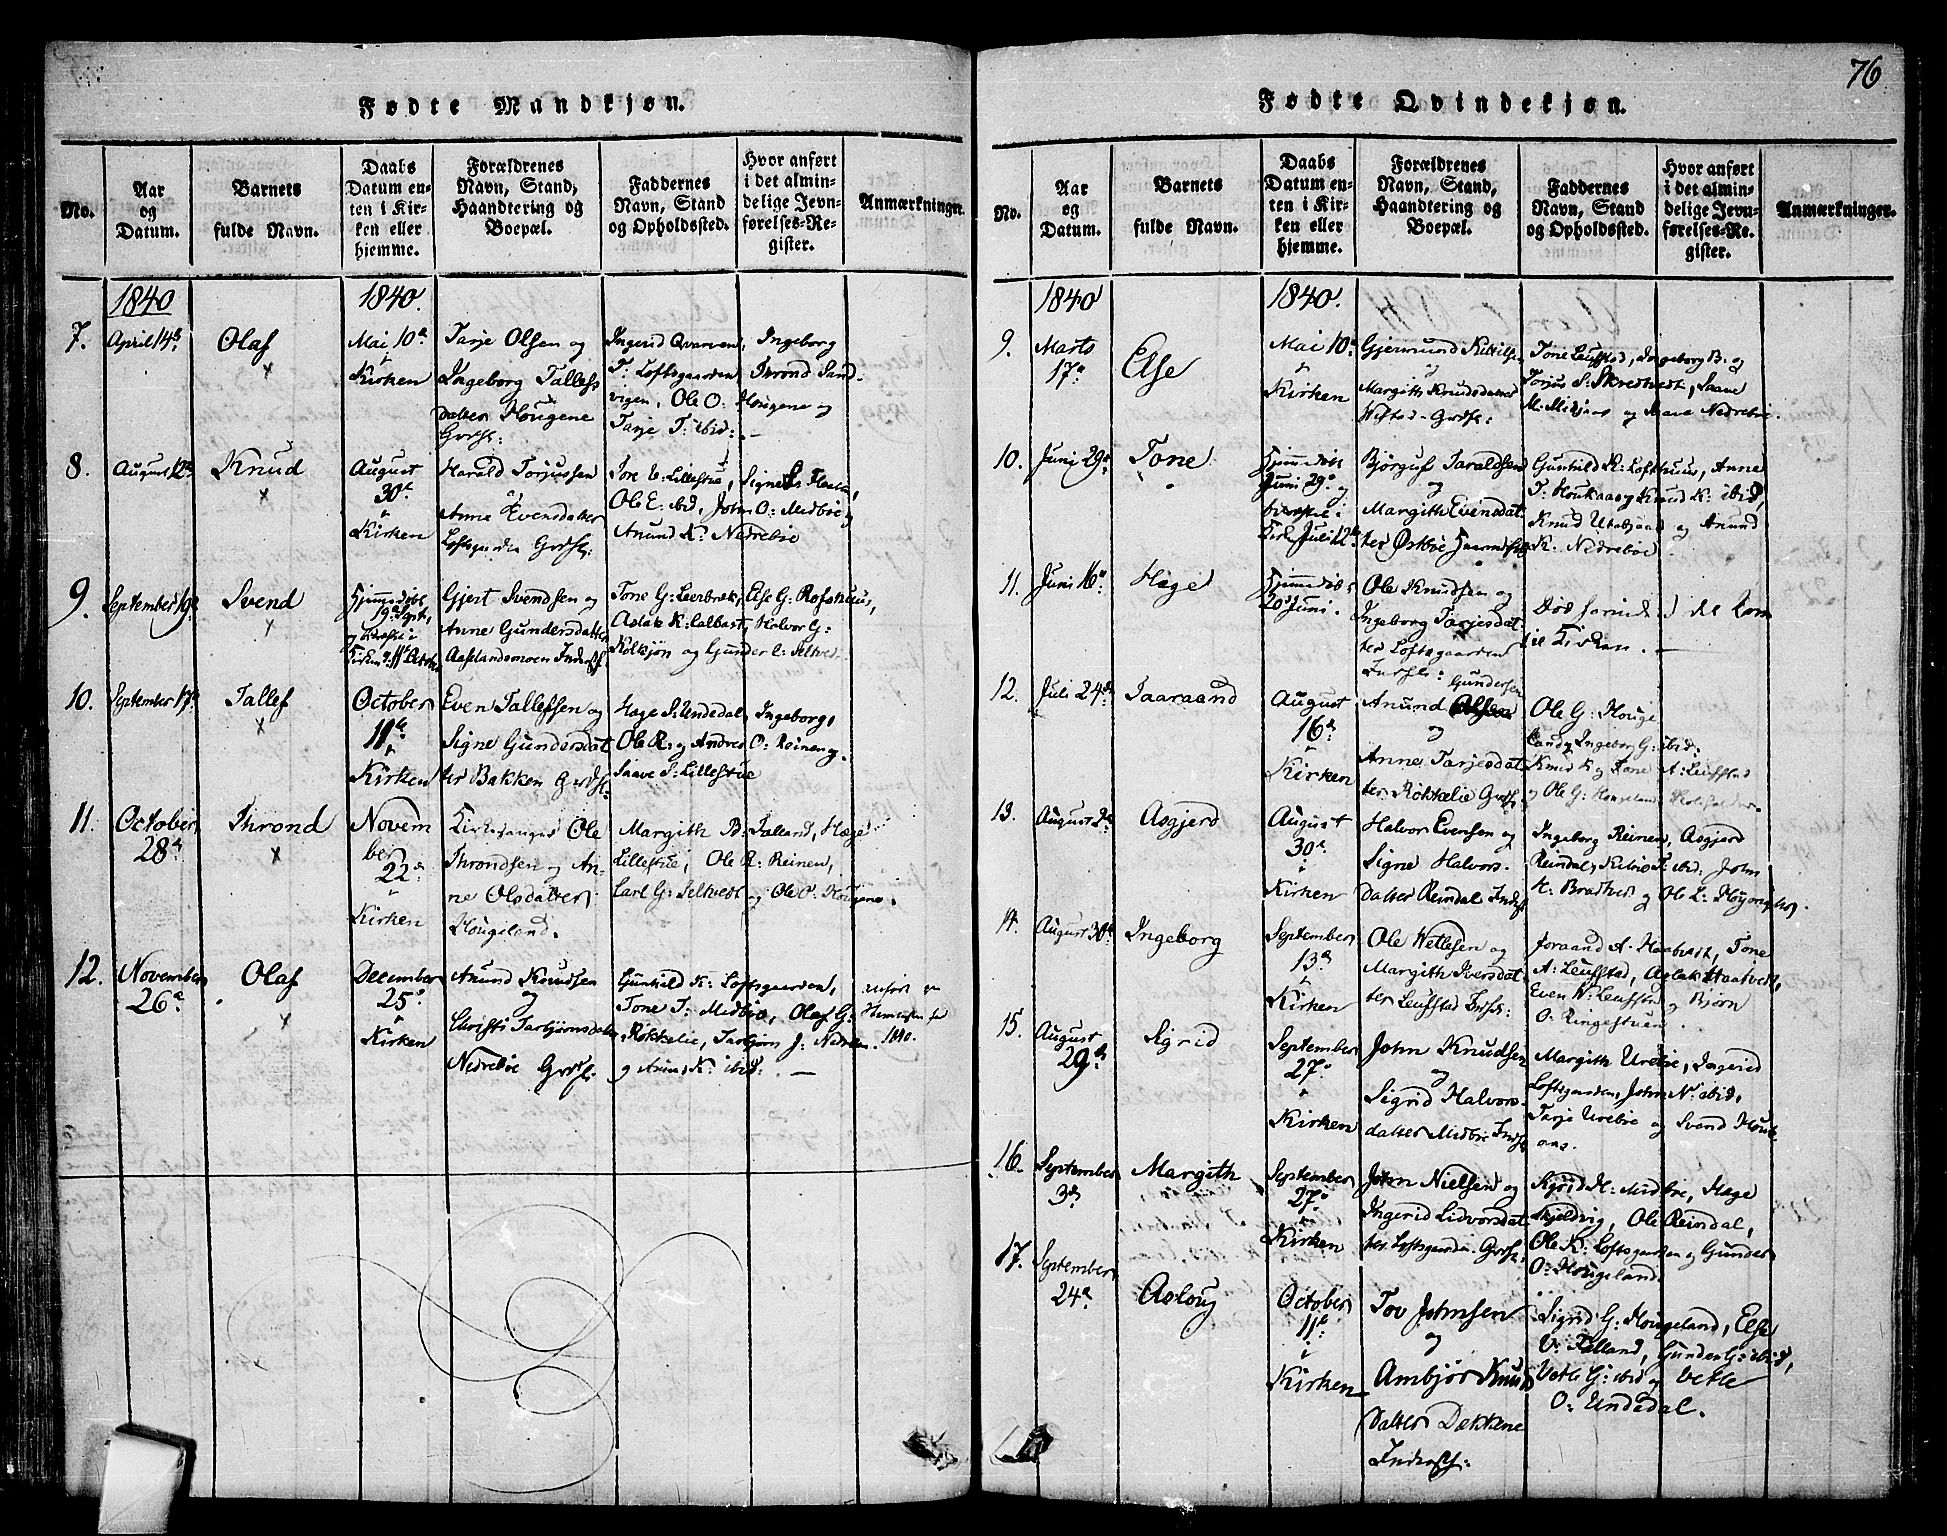 76
Fødte Mandkjøn.
No.
Aar og Datum.
Barnets fulde Navn.
Daabs Datum enten i Kirken eller hjemme.
Forældrenes Navn, Stand, Haandtering og Boepæl.
Faddernes Navn, Stand og Opholdssted.
Hvor anført i det almindelige Jevnførelses-Register.
Anmærkninger.
1840
1840.
7.
April 14de
Olaf
×
Mai 10de
i
Kirken
Tarje Olsen og
Ingeborg Tallefs
datter Hougene
Grdf:
Ingerid Qvarven, Ingeborg
T. Loftsgaarden Thrond Sand-
vigen, Ole O: Hougene og
Tarje T: ibid:
8.
August 12te
Knud
×
August
30te
i
Kirken
Harald Torjussen
og
Anne Evensdatter
Loftsgarden Grdf:
Tore E: Lillestue, Signe
Ole E: ibid, John O: Midbøe og
Anund K: Nedrebøe
9.
September 19de
Svend
×
Hjemmedøbt
19de Sept.
Kirken 11te October
Gjert Svendsen og
Anne Gundersdatter
Aaslandsmoen Inderst
Tone G: Leerbræk, Else G: Rofshuus,
Aslak K: Lalbast, Halvor G:
Kolkjøn og Gunder E: Seltvedt
10.
September 17de
Tallef
×
October
11te
i
Kirken
Even Tallefsen og
Signe Gundersdat
ter Bakken Grdf:
Hæge S: Undedal, Ingeborg,
Ole R: og Andres O: Reinen og
Saave S: Lillestue
11.
October
28de
Thrond
×
Novem
ber
22de
i
Kirken
Kirkesanger Ole
Throndsen og An-
ne Olsdatter
Hougeland.
Margith B: Talland, Hæge
Lillestue, Ole R: Reinen,
Carl G: Seltvedt og Ole O: Hougene.
12.
November
26de
Olaf
×
December
25de
i
Kirken
Anund Knudsen
og
Christi Tarbjørnsdatter
Nedrebøe Grdf:
Gunhild K: Loftsgaarden,
Tone T: Midbøe, Olaf G:
Røkkelie, Tarbjørn J: Nedrebøe
og Anund K: ibid:
1840.
Fødte Qvindekjøn.
No.
Aar og Datum.
Barnets fulde Navn.
Daabs Datum enten i Kirken eller hjemme.
Forældrenes Navn, Stand, Haandtering og Boepæl.
Faddernes Navn, Stand og Opholdssted.
Hvor anført i det almindelige Jevnførelses-Register.
Anmærkninger.
1840
1840.
9.
Marts
17de
Else
Mai 10de
i
Kirken
Gjermund Kittilsen
og
Margith Knudsdatter
Grdf:
Tone Leufstad, Ingeborg B. og
Torjus S: Skredtvedt, Saave
M: og Aase Nedrebøe.
10.
Juni 29de
Tone
Hjemmedøbt
Juni 29de og
Kirk. Juli 12te
Bjørguf Taraldsen
og
Margith Evensdat
ter Østbøe Huusmd
Gunhild K: Lofthuus, Anne
T: Houkaas og Knud K: ibid,
Knud Utabjaae og Anund
K. Nedrebøe.
11.
Juni 16de
Hæge
Hjemmedøbt
20de Juni.
Ole Knudsen og
Ingeborg Tarjesdat
ter Loftsgaarden
Inderst:
Død forinden det kom
til Kirken.
12.
Juli 24de
Taaraand
August
16de
i
Kirken
Anund Gundersen
og
Anne Tarjesdat
ter Røkkelie Grdf:
Ole G: Houge
Ingeborg G: ibid:
Knud K og Tone A: Leufstad
og Ole G: Hougeland
13.
August 2de
Asgjerd
August
30te
i
Kirken
Halvor Evensen og
Signe Halvors-
datter Reindal Indst
Ingeborg Reinen, Asgjerd
Reindal, ibid. John
H: Bradtved og Ole L:
14.
August 30te
Ingeborg
September
13de
i
Kirken
Ole Wetlesen og
Margith Iversdat
ter Leufstad Indst:
Joraand A. Haatvedt, Tone
A: Leufstad, Aslak Haatvedt,
Even W: Leufstad og Bjørn
O: Ringestuen.
15.
August
29de
Sigrid
September
27de
i
Kirken
John Knudsen
og
Sigrid Halvors-
datter Midbøe Indst
Margith Urebøe, Ingerid
Loftsgaarden, John N: ibid,
Tarje Urebøe og Svend Houk-
aas.
16.
September
3de
Margith
September
27de
i
Kirken
John Nielsen og
Ingerid Lidvorsdat
ter Loftsgaarden Grdf:
H: Midbøe, Hæge
Skjeldvig, Ole Reindal,
Ole K: Loftsgaarden og Gunder
O: Hougeland.
17.
September
24de
Aslaug
October
11te
i
Kirken
Tov Johnsen
og
Ambjør Knuds
datter Dækkene
Inderst:
Sigrid G: Hougeland, Else
V: Talland, Gunder G: ibid,
Vetle G: ibid og Vetle
O: Undedal.